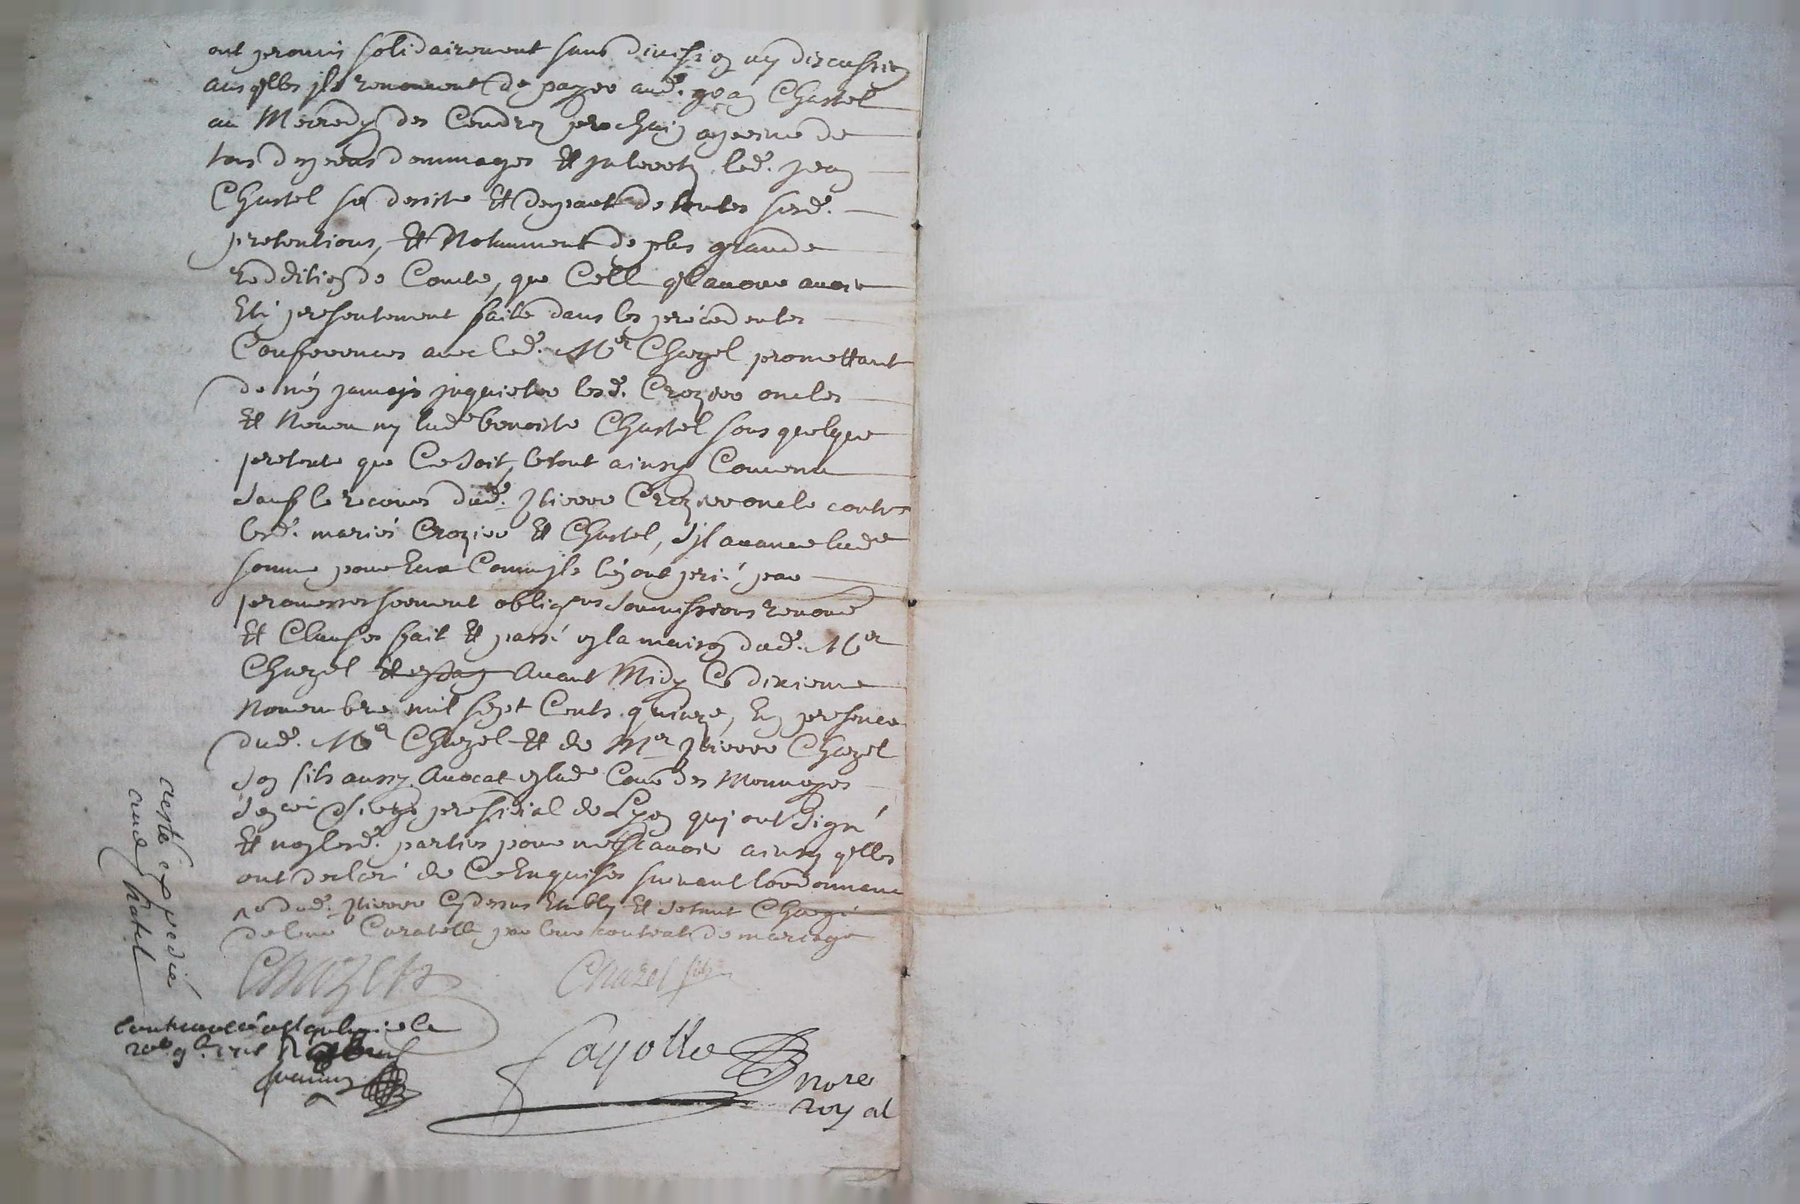 ont promis solidairement sans division ny discussion
ausqlles ils renoncent de payer aud. Jean Chastel
au Mecredy des Cendres prochain a peine de
tous depens dommages et interets led. Jean
Chastel se desiste et depart de toutes sesd.
pretentions, et Notamment de plus grande
reddition de Comte, que Celle ql avoue avoir
Eté presentement faite dans les précedentes
Conferences avec led. Mer Chazel promettant
de n'en jamais inquieter lesd. Crozier oncles
et Neveu ny lade benoiste Chastel sous quelque
pretexte que Ce soit, le tout ainsy Convenu
sauf le recours dud. Pierre Crozier oncle contre
lesd. mariés Crozier et Chastel, s'il avance lade
somme pour Eux Comme ils l'en ont prié par
promesses serment obligons soumissions renonc
et Clauses fait et passé en la maison dud. Mer
Chazel avant Midy Ce dixieme
Novembre mil sept Cents quinze, En presence
dud. Mer Chazel et de Mer Pierre Chazel
son fils aussy Avocat en lade Cour des Monnoyes
Sencée Siege presidial de Lyon qui ont signé
et non lesd. parties pour ne sçavoir ainsy qlles
ont declaré de Ce Enquises suivant l'ordonnance
dud. Pierre Cy dessus Etably et s'etant Chargé
de leur Curatelle par leur contrat de mariage
Chazel
Chazel fils
Fayolle
nore
royal
cette expedié
aud. Chatel
Controllé